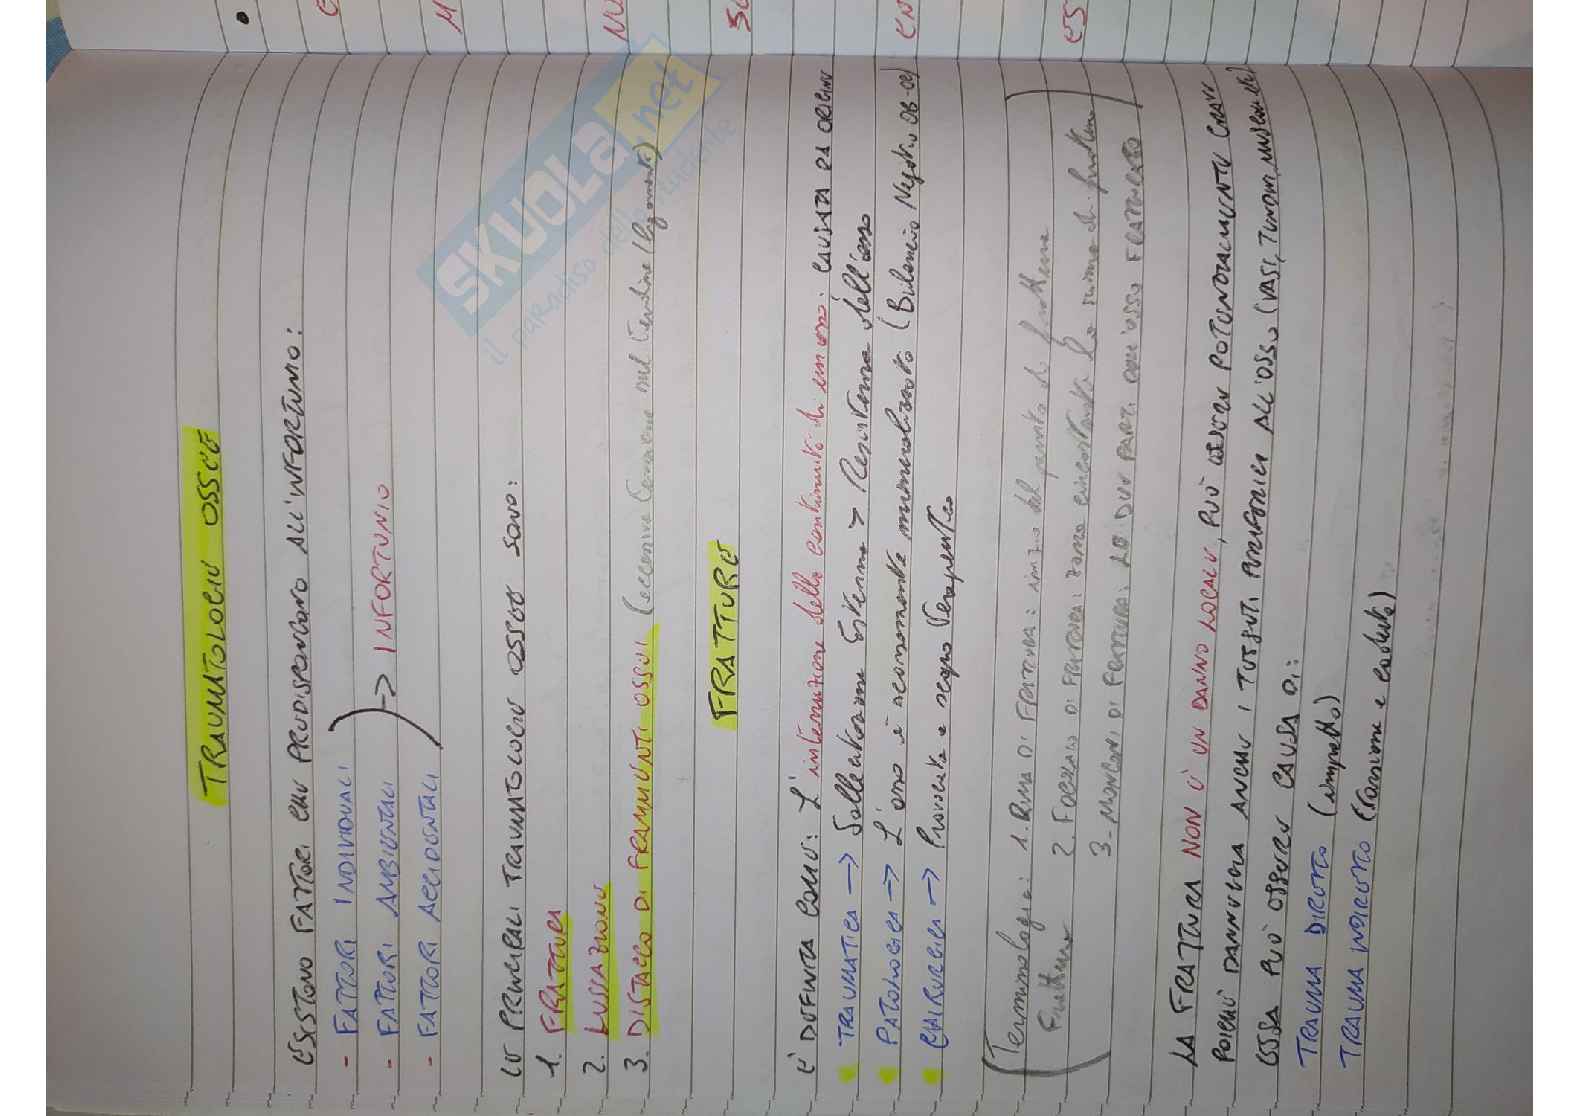 TRAUMATOLOGIE OSSEE
ESISTONO FATTORI CHE PREDISPONGONO ALL'INFORTUNIO:
- FATTORI INDIVIDUALI
- FATTORI AMBIENTALI
- FATTORI ACCIDENTALI
-> INFORTUNIO
LE PRINCIPALI TRAUMATOLOGIE OSSEE SONO:
1. FRATTURA
2. LUSSAZIONE
3. DISTACCO DI FRAMMENTI OSSEI (eccessiva tensione sul tendine / legamento)
FRATTURE
È DEFINITA COME: L'interruzione della continuità di un osso: CAUSATA DA ORIGINE
TRAUMATICA -> Sollecitazione Esterna > Resistenza dell'osso
PATOLOGICA -> L'osso è scarsamente mineralizzato (Bilancio Negativo OB-OC)
CHIRURGICA -> Provocata a scopo terapeutico
Terminologia: 1. RIMA DI FRATTURA: inizio del punto di frattura
Frattura 2. FOCOLAIO DI FRATTURA: zona circostante la rima di frattura
3. MONCONI DI FRATTURA: LE DUE PARTI DELL'OSSO FRATTURATO
LA FRATTURA NON È UN DANNO LOCALE, PUÒ ESSERE POTENZIALMENTE GRAVE
POICHÉ DANNEGGIA ANCHE I TESSUTI PERIFERICI ALL'OSSO (VASI, TENDINI, MUSCOLI)
ESSA PUÒ ESSERE CAUSA DI:
TRAUMA DIRETTO (impatto)
TRAUMA INDIRETTO (torsione e caduta)
SKUOLA.net
il paradiso dello studente